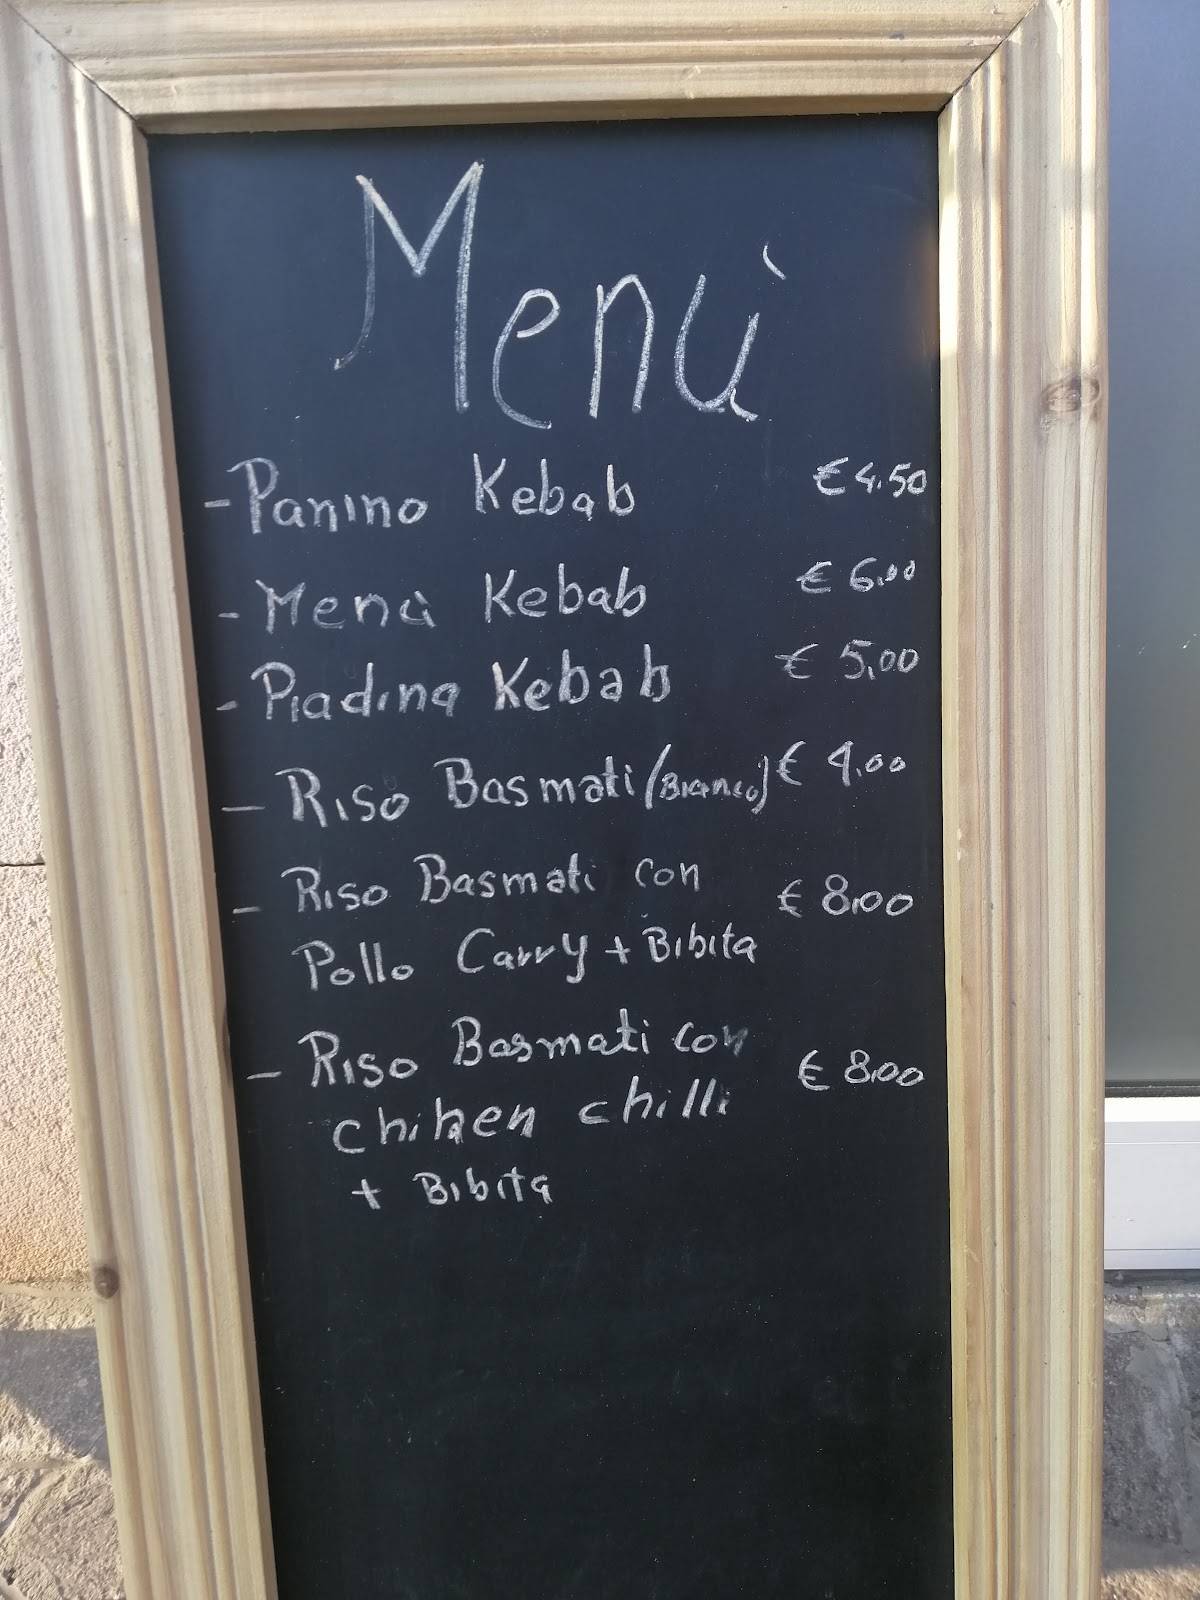 Menù
- Panino Kebab € 4.50
- Menù Kebab € 6,00
- Piadina Kebab € 5,00
- Riso Basmati (Bianco) € 4.00
- Riso Basmati con € 8,00
Pollo Carry + Bibita
- Riso Basmati con € 8,00
chihen chilli
+ Bibita